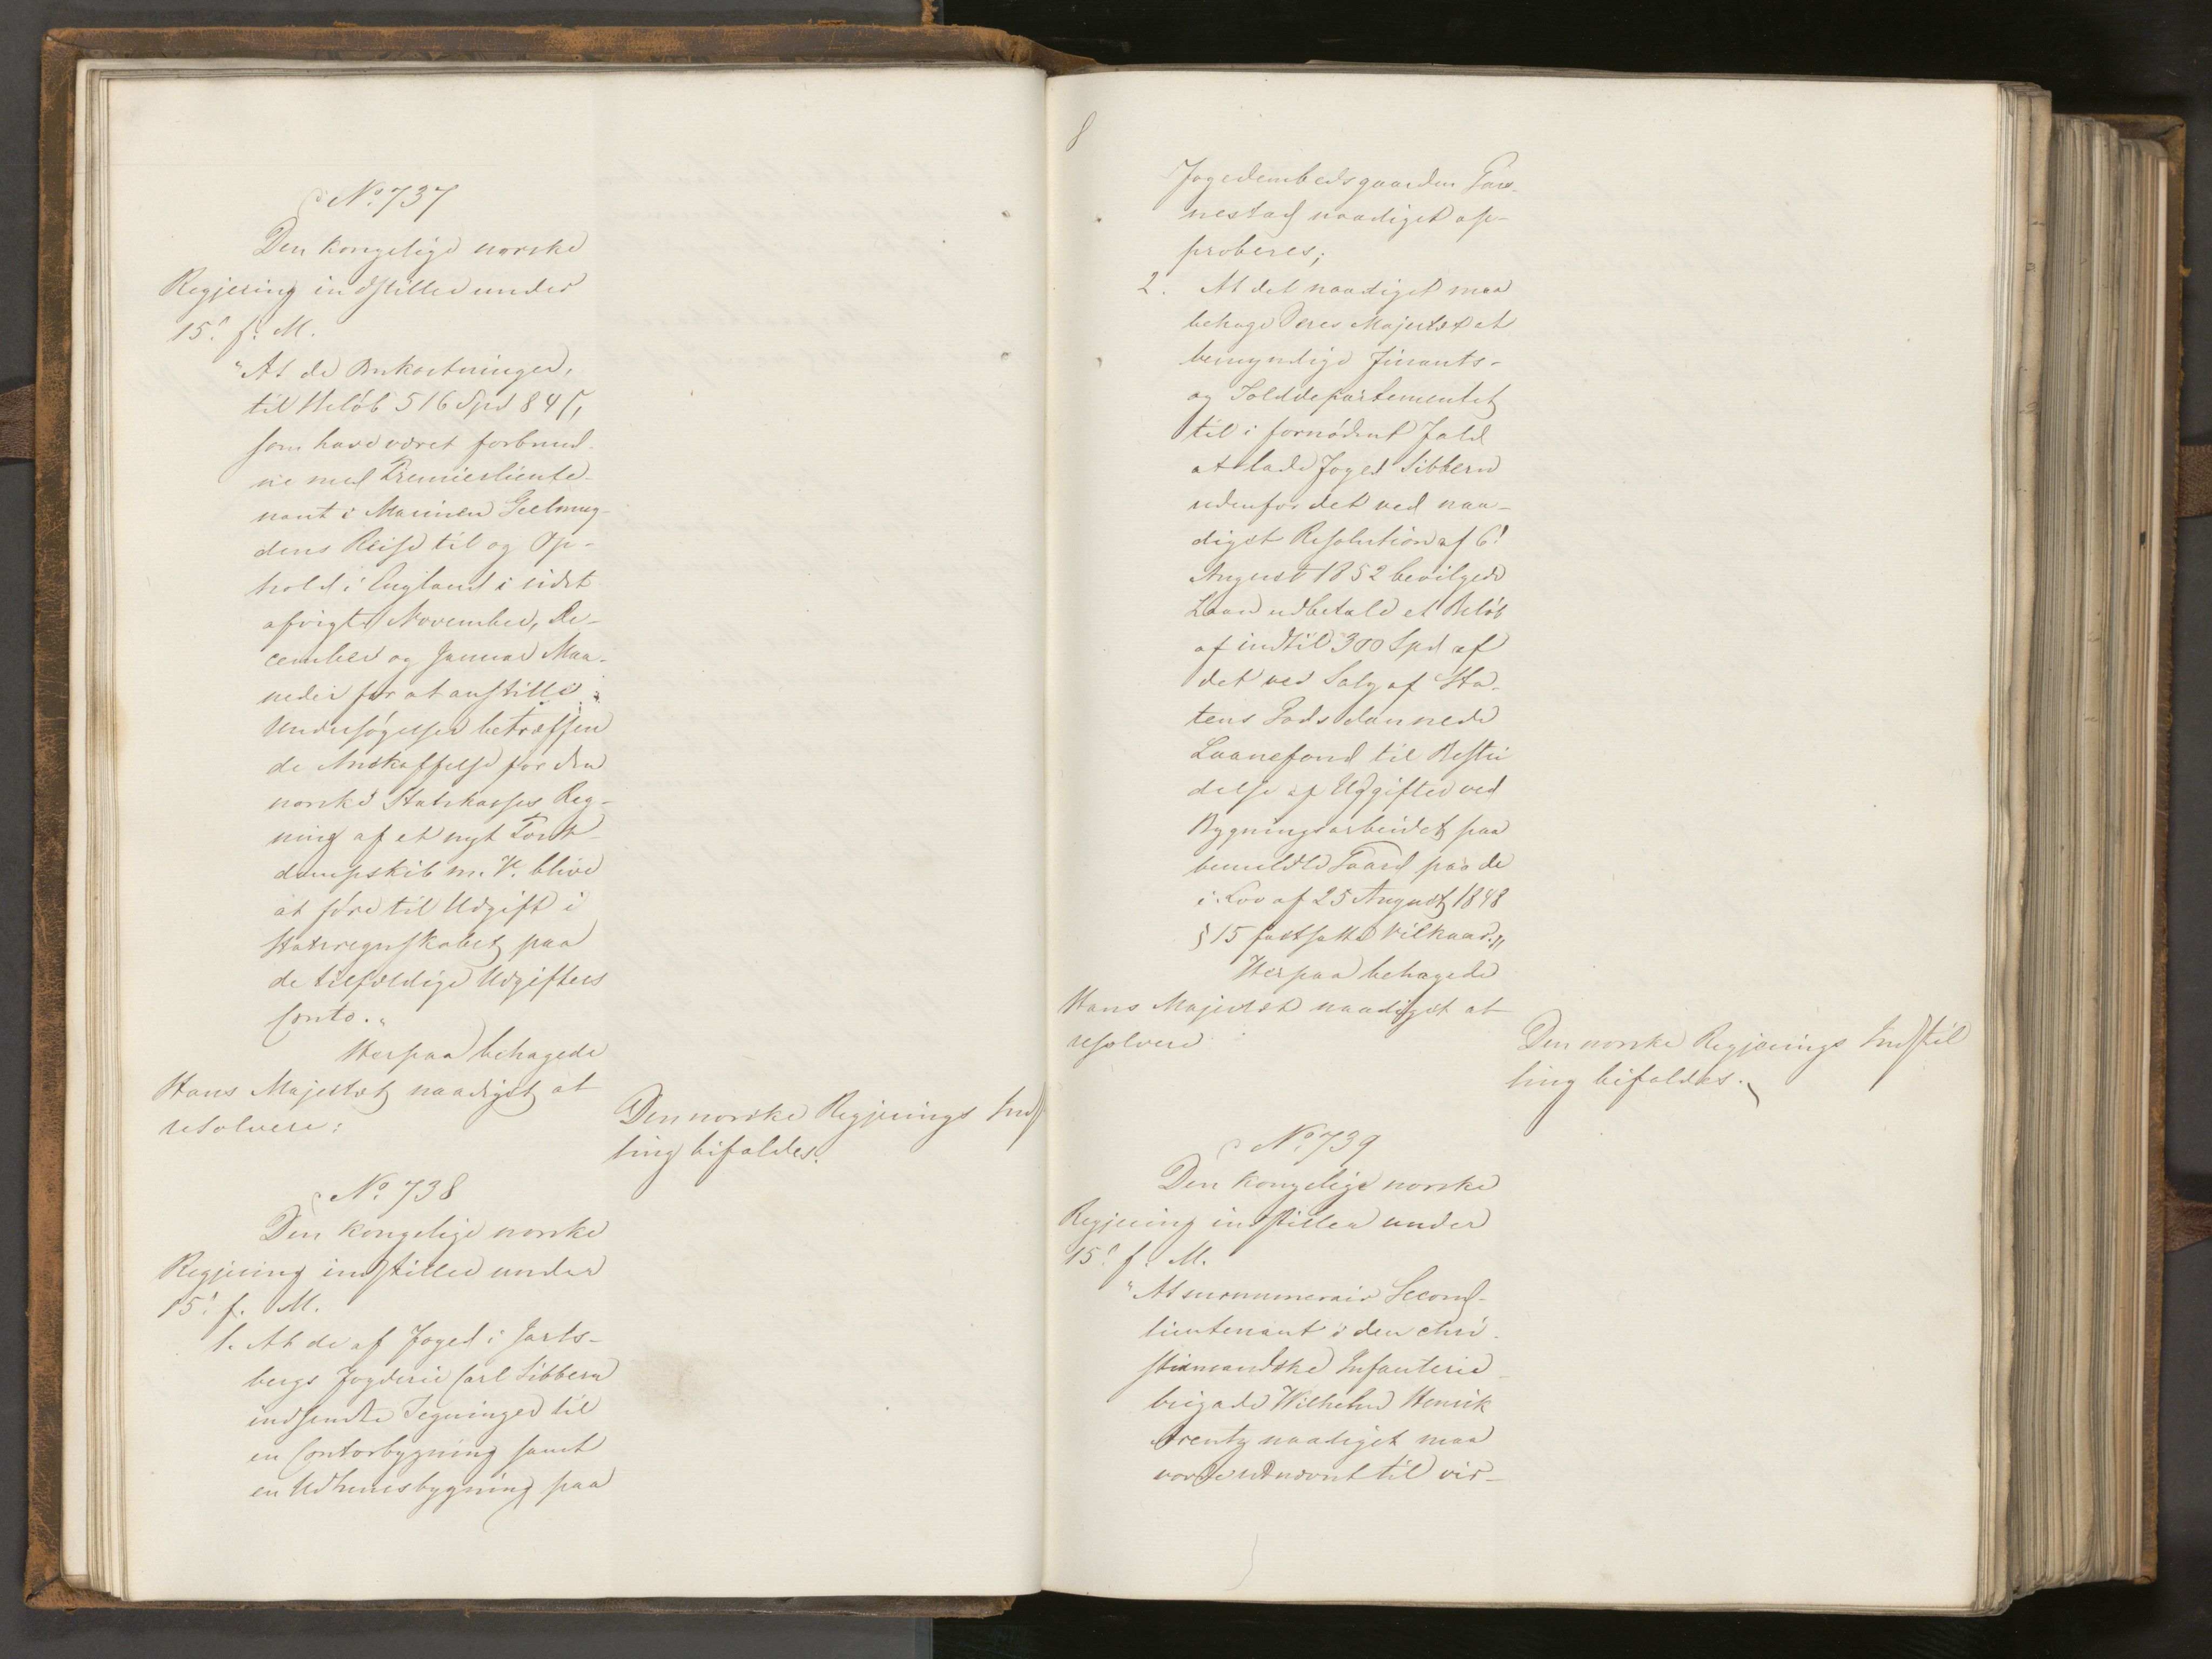 No 737
Den kongelige norske
Regjering indstiller under
15. f. M.
"At de Omkostninger,
til Beløb 516 Spd 84 s,
som have været forbund-
ne med Premierlieute-
nant i Marinen Geelmuy-
dens Reise til og Op-
hold i England i sidst
afvigte November, De-
cember og Januar Maa-
neder for at anstille
Undersøgelser betræffen
de Anskaffelse for den
norske Statskasses Reg-
ning af et nyt Post
dampskib m. V. blive
at føre til Udgift i
Statsregnskabet paa
de tilfældige Udgifters
Conto."
Herpaa behagede
Hans Majestæt naadigst at
resolvere:
Den norske Regjerings Indst
ling bifaldes.
No 738
Den kongelige norske
Regjering indstiller under
15. f. M.
1. At de af Foged i Jarls-
bergs Fogderie Carl Sibbern
indsendte Tegninger til
en Contorbygning samt
en Udhuusbygning paa
8
Fogedembedsgaarden
nestad naadigst ap-
proberes;
2. At det naadigst maa
behage Deres Majestæt at
bemyndige Finants-
og Tolddepartementet
til i fornødent Fald
at lade Foged Sibbern
udenfor det ved naa-
digst Resolution af 6.
August 1852 bevilgede
Laan udbetale et Beløb
af indtil 300 Spd af
det ved Salg af Sta-
tens Gods dannede
Laanefond til Bestri
delse af Udgifter ved
Bygningsarbeidet paa
bemeldte Gaard paa de
i Lov af 25 August 1848
§ 15 fastsatte Vilkaar."
Herpaa behagede
Hans Majestæt naadigst at
resolvere
Den norske Regjerings Indstil
ling bifaldes.
No 739
Den kongelige norske
Regjering indstiller under
15. f. M.
"At surnumerair Second-
lieutenant i den chri-
stiansandske Infanterie
brigade Wilhelm Henrik
naadigst maa
vorde udnævnt til vir-